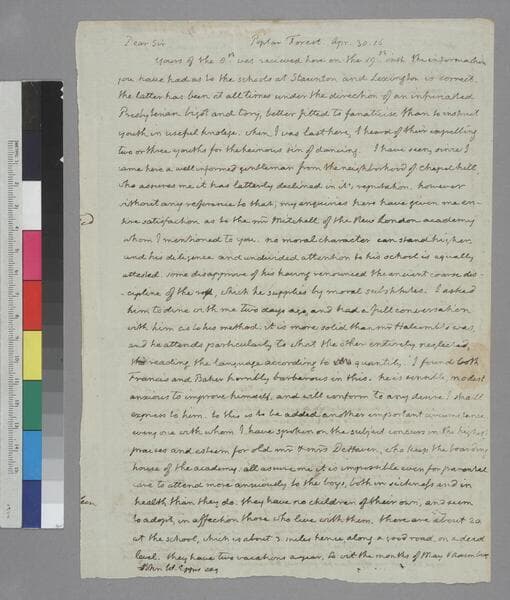 Dear Sir Poplar Forest Apr. 30. 16
Yours of the 8th was recieved here on the 19th inst. the information
you have had as to the schools at Staunton and Lexington is correct.
the latter has been at all times under the direction of an infuriated
Presbyterian bigot and tory, better fitted to fanaticise than to instruct
youth in useful knolege. when I was last here, I heard of their expelling
two or three youths for the heinous sin of dancing. I have seen, since I
came here a well informed gentleman from the neighborhood of Chapel hill,
who assures me it has latterly declined in it's reputation. however
without any reference to that, my enquiries here have given me en-
tire satisfaction as to the mr Mitchell of the New London academy
whom I mentioned to you. no moral character can stand higher,
and his diligence and undivided attention to his school is equally
attested. some disapprove of his having renounced the ancient coarse dis-
-cipline of the rod, which he supplies by moral substitutes. I asked
him to dine with me two days ago, and had a full conversation
with him as to his method. it is more solid than mr Halcomb's was,
and he attends particularly to what the other entirely neglected,
the reading the language according to quantity. I found both
Francis and Baker horribly barbarous in this. he is sensible, modest
anxious to improve himself, and will conform to any desire I shall
express to him. to this is to be added another important circumstance.
every one with whom I have spoken on the subject concurs in the highest
praises and esteem for old mr & mrs DeHaven, who keep the boarding
house of the academy. all assure me it is impossible even for parental
care to attend more anxiously to the boys, both in sickness and in
health than they do. they have no children of their own, and seem
to adopt, in affection those who live with them. there are about 20
at the school, which is about 3. miles hence along a good road, on a dead
level. they have two vacations a year, to wit the months of May & November
John W. Eppes esq